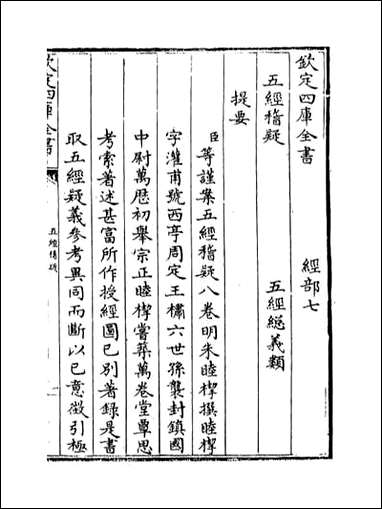 欽定四庫全書 經部七
五經稽疑 五經總義類
提要
臣等謹案五經稽疑八卷明朱睦㮮撰睦㮮
字灌甫號西亭周定王橚六世孫襲封鎮國
中尉萬厯初舉宗正睦㮮嘗築萬卷堂覃思
考索著述甚富所作授經圖已別著錄是書
取五經疑義參考異同而斷以已意徵引極
欽定四庫全書
五經稽疑